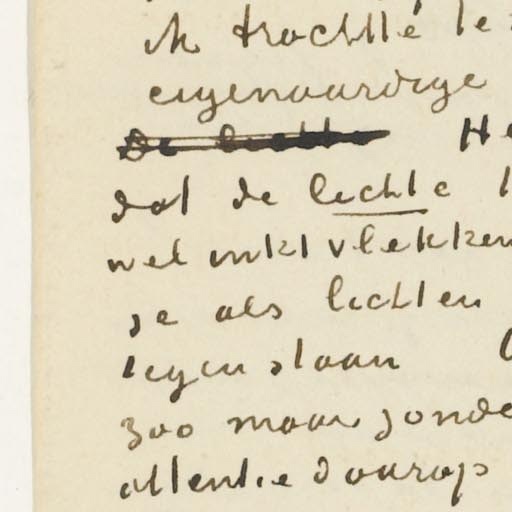 ik trachtte te
eigenaardige
De lichte He
dat de lichte
wel inktvlekken
je als lichten
tegen staan
zoo maar zonde
attentie daarop